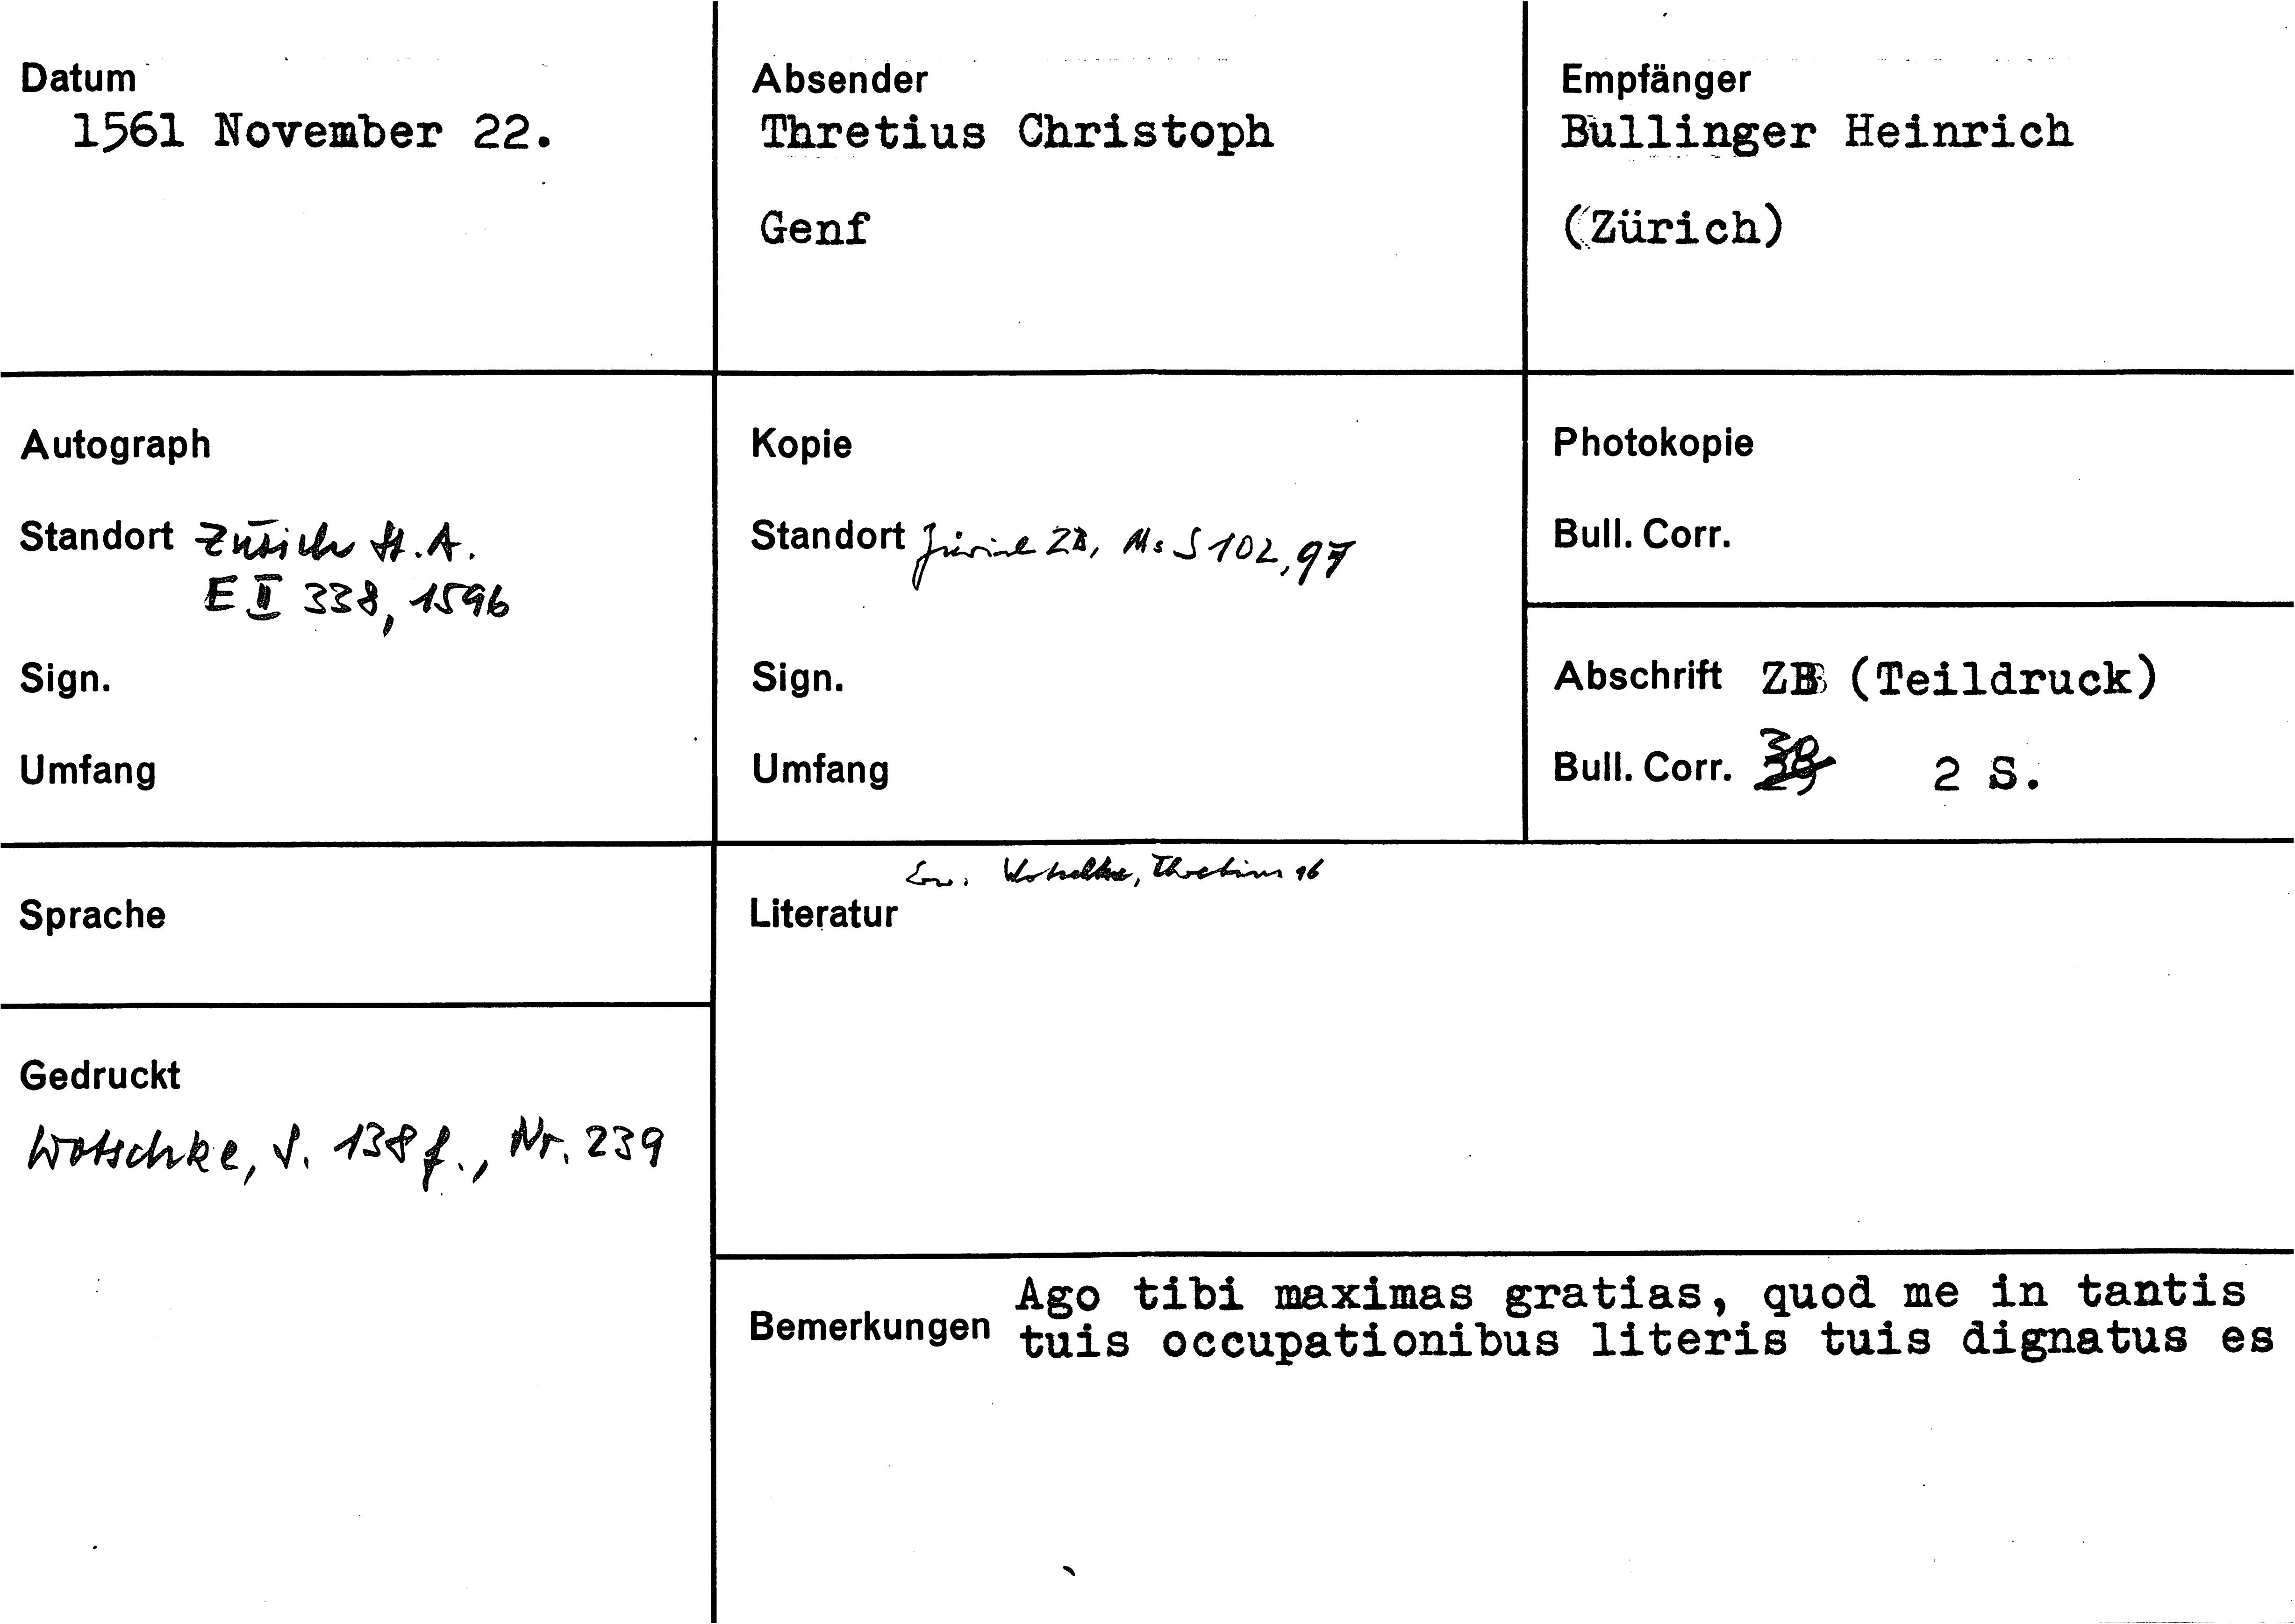 Datum
1561 November 22.
Absender
Thretius Christoph
Genf
Empfänger
Bullinger Heinrich
(Zürich)
Autograph
Standort Zürich St.A.
E II 338, 1596
Sign.
Umfang
Kopie
Standort Zürich ZB, Ms S 102, 97
Sign.
Umfang
Photokopie
Bull. Corr.
Abschrift ZB (Teildruck)
Bull. Corr. 2 S.
Sprache
Gedruckt
Wotschke, S. 138 f., Nr. 239
Erw. Wotschke, Thretius 16
Literatur
Bemerkungen Ago tibi maximas gratias, quod me in tantis
tuis occupationibus literis tuis dignatus es